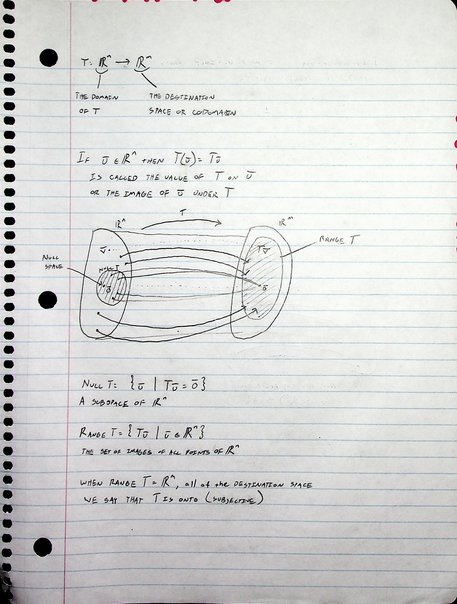 T: ℝⁿ → ℝᵐ
THE DOMAIN THE DESTINATION
OF T SPACE OR CODOMAIN
IF ū ∈ ℝⁿ THEN T(ū) = Tū
IS CALLED THE VALUE OF T ON ū
OR THE IMAGE OF ū UNDER T
T
ℝⁿ ℝᵐ
RANGE T
ū Tū
NULL
SPACE
NULL T
ō ō
NULL T = {ū | Tū = ō}
A SUBSPACE OF ℝⁿ
RANGE T = {Tū | ū ∈ ℝⁿ}
THE SET OF IMAGES OF ALL POINTS OF ℝⁿ
WHEN RANGE T = ℝᵐ, all of the DESTINATION SPACE
WE SAY THAT T IS ONTO (SURJECTIVE)